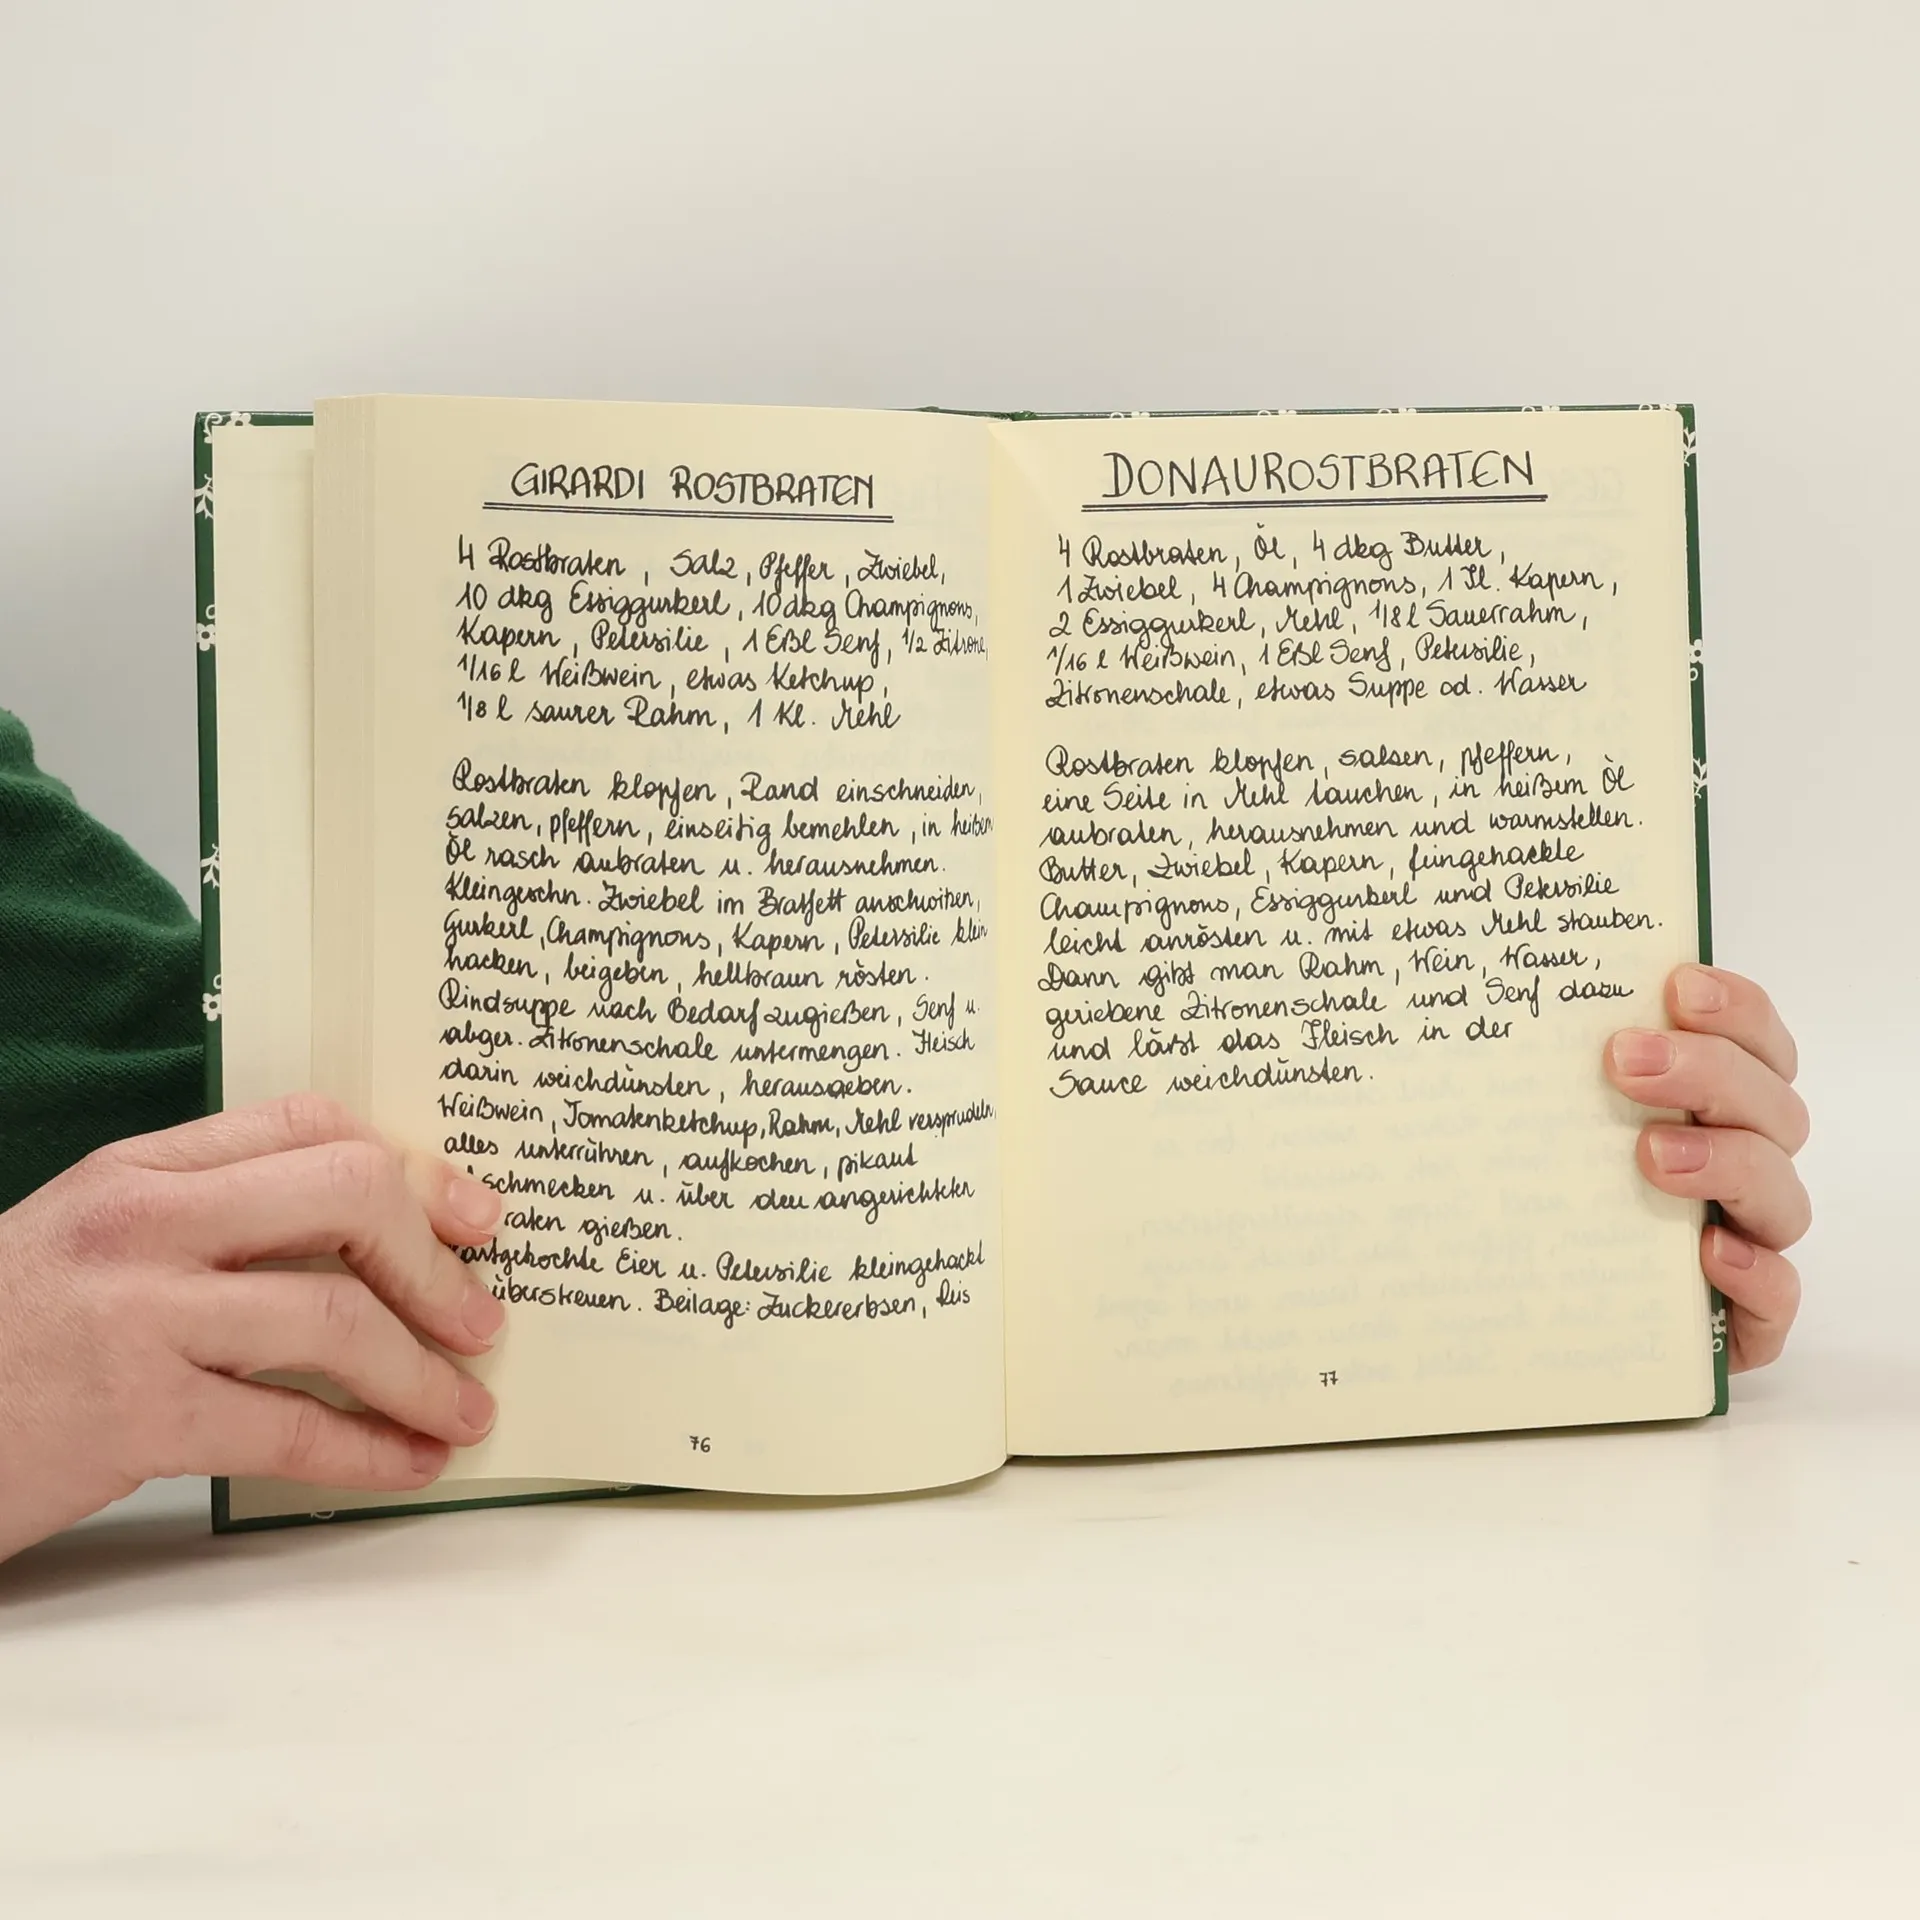 GIRARDI ROSTBRATEN
4 Rostbraten, Salz, Pfeffer, Zwiebel,
10 dkg Essiggurkerl, 10 dkg Champignons,
Kapern, Petersilie, 1 Eßl Senf, 1/2 Zitrone,
1/16 l Weißwein, etwas Ketchup,
1/8 l saurer Rahm, 1 Kl. Mehl
Rostbraten klopfen, Rand einschneiden,
salzen, pfeffern, einseitig bemehlen, in heißem
Öl rasch anbraten u. herausnehmen.
Kleingeschn. Zwiebel im Bratfett anschwitzen,
Gurkerl, Champignons, Kapern, Petersilie klein
hacken, beigeben, hellbraun rösten.
Rindsuppe nach Bedarf zugießen, Senf u.
abger. Zitronenschale untermengen. Fleisch
darin weichdünsten, herausgeben.
Weißwein, Tomatenketchup, Rahm, Mehl versprudeln,
alles unterrühren, aufkochen, pikant
schmecken u. über den angerichteten
raten gießen.
artgekochte Eier u. Petersilie kleingehackt
überstreuen. Beilage: Zuckererbsen, Reis
76
DONAUROSTBRATEN
4 Rostbraten, Öl, 4 dkg Butter,
1 Zwiebel, 4 Champignons, 1 Tl. Kapern,
2 Essiggurkerl, Mehl, 1/8 l Sauerrahm,
1/16 l Weißwein, 1 Eßl Senf, Petersilie,
Zitronenschale, etwas Suppe od. Wasser
Rostbraten klopfen, salzen, pfeffern,
eine Seite in Mehl tauchen, in heißem Öl
anbraten, herausnehmen und warmstellen.
Butter, Zwiebel, Kapern, feingehackte
Champignons, Essiggurkerl und Petersilie
leicht anrösten u. mit etwas Mehl stauben.
Dann gibt man Rahm, Wein, Wasser,
geriebene Zitronenschale und Senf dazu
und läßt das Fleisch in der
Sauce weichdünsten.
77